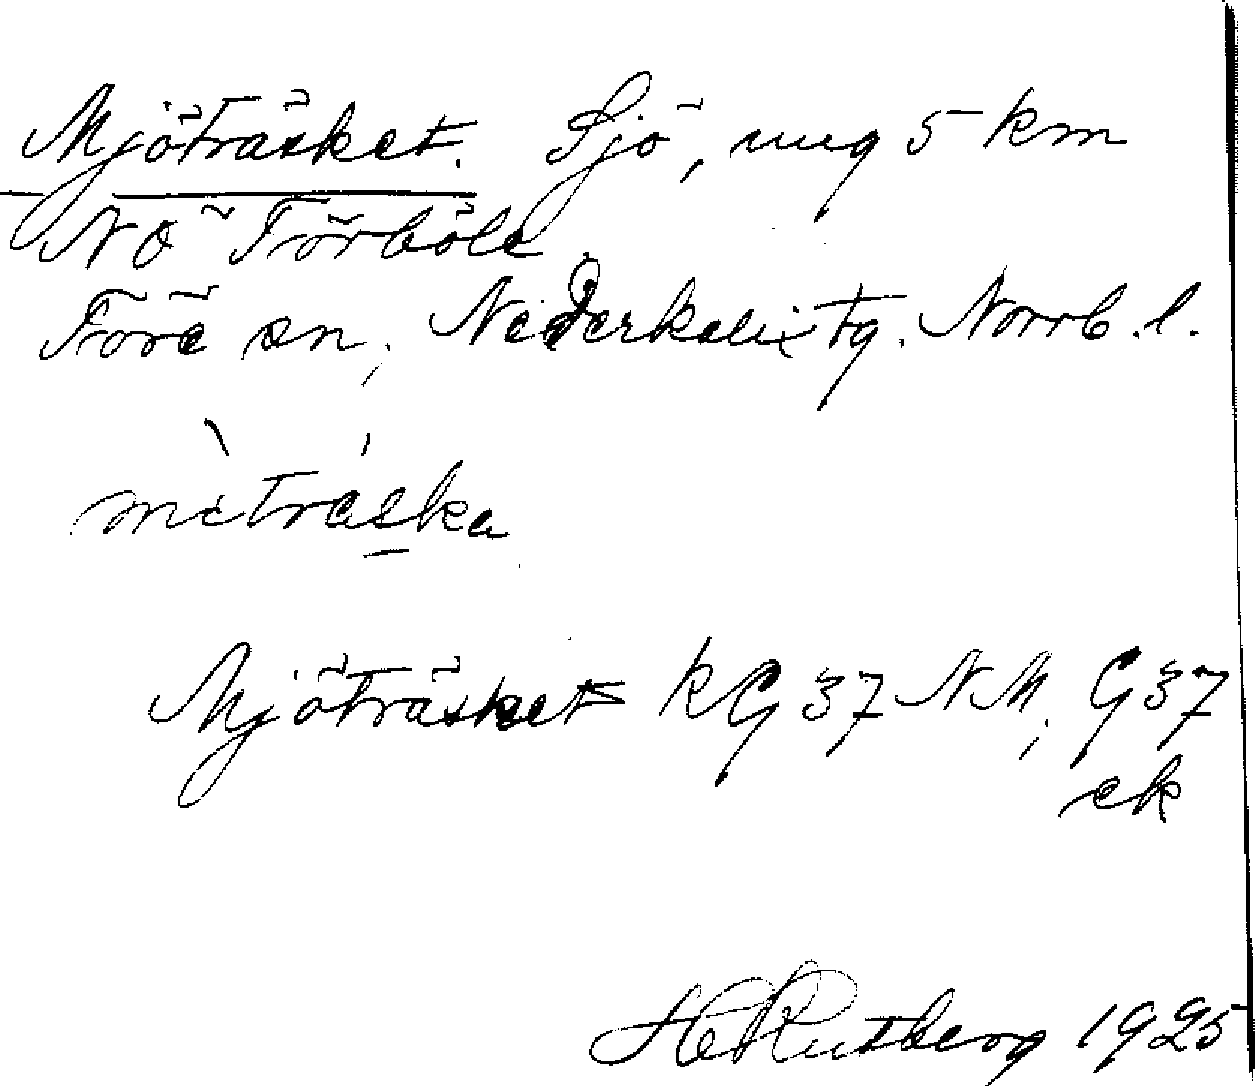 Mjöträsket. Sjö, ung 5 km
NO Törböle
Töre sn, Nederkalix tg. Norrb. l.
mètráska
Mjöträsket KG 37 NM; G 37
ek
HRutberg 1925